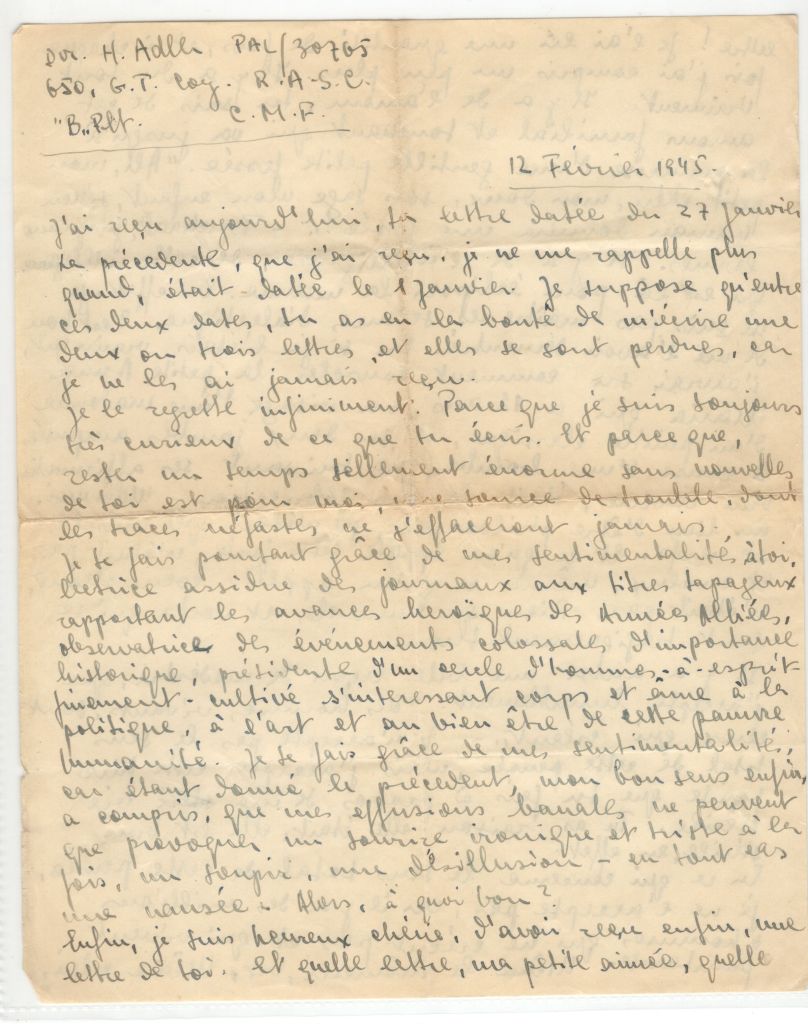 Dvr. H. Adler PAL/30765
650, G.T. Coy. R.A.S.C.
"B" Plt. C.M.F.
12 Février 1945.
J'ai reçu aujourd'hui, ta lettre datée du 27 Janvier
La précedente, que j'ai reçu, je ne me rappelle plus
quand, était datée le 1 Janvier. Je suppose qu'entre
ces deux dates, tu as eu la bonté de m'écrire une
deux ou trois lettres, et elles se sont perdues, car
je ne les ai jamais reçu.
Je le regrette infiniment. Parce que je suis toujours
très curieux de ce que tu écris. Et parce que,
rester un temps tellement énorme sans nouvelles
de toi est pour moi, une source de trouble, dont
les traces néfastes ne s'effaceront jamais.
Je te fais pourtant grâce de mes sentimentalités, à toi,
lectrice assidue des journaux aux titres tapageux
rapportant les avances heroïques des Armées Alliées,
observatrice des événements colossales d'importance
historique, présidente d'un cercle d'hommes-à-esprit-
finement-cultivé s'interessant corps et âme à la
politique, à l'art et au bien être de cette pauvre
humanité. Je te fais grâce de mes sentimentalités,
car étant donné le précedent, mon bon sens enfin,
a compris, que mes effusions banales ne peuvent
que provoquer un sourire ironique et triste à la
fois, un soupir, une désillusion - en tout cas
une nausée. Alors, à quoi bon?
Enfin, je suis heureux chérie, d'avoir reçu enfin, une
lettre de toi. Et quelle lettre, ma petite aimée, quelle